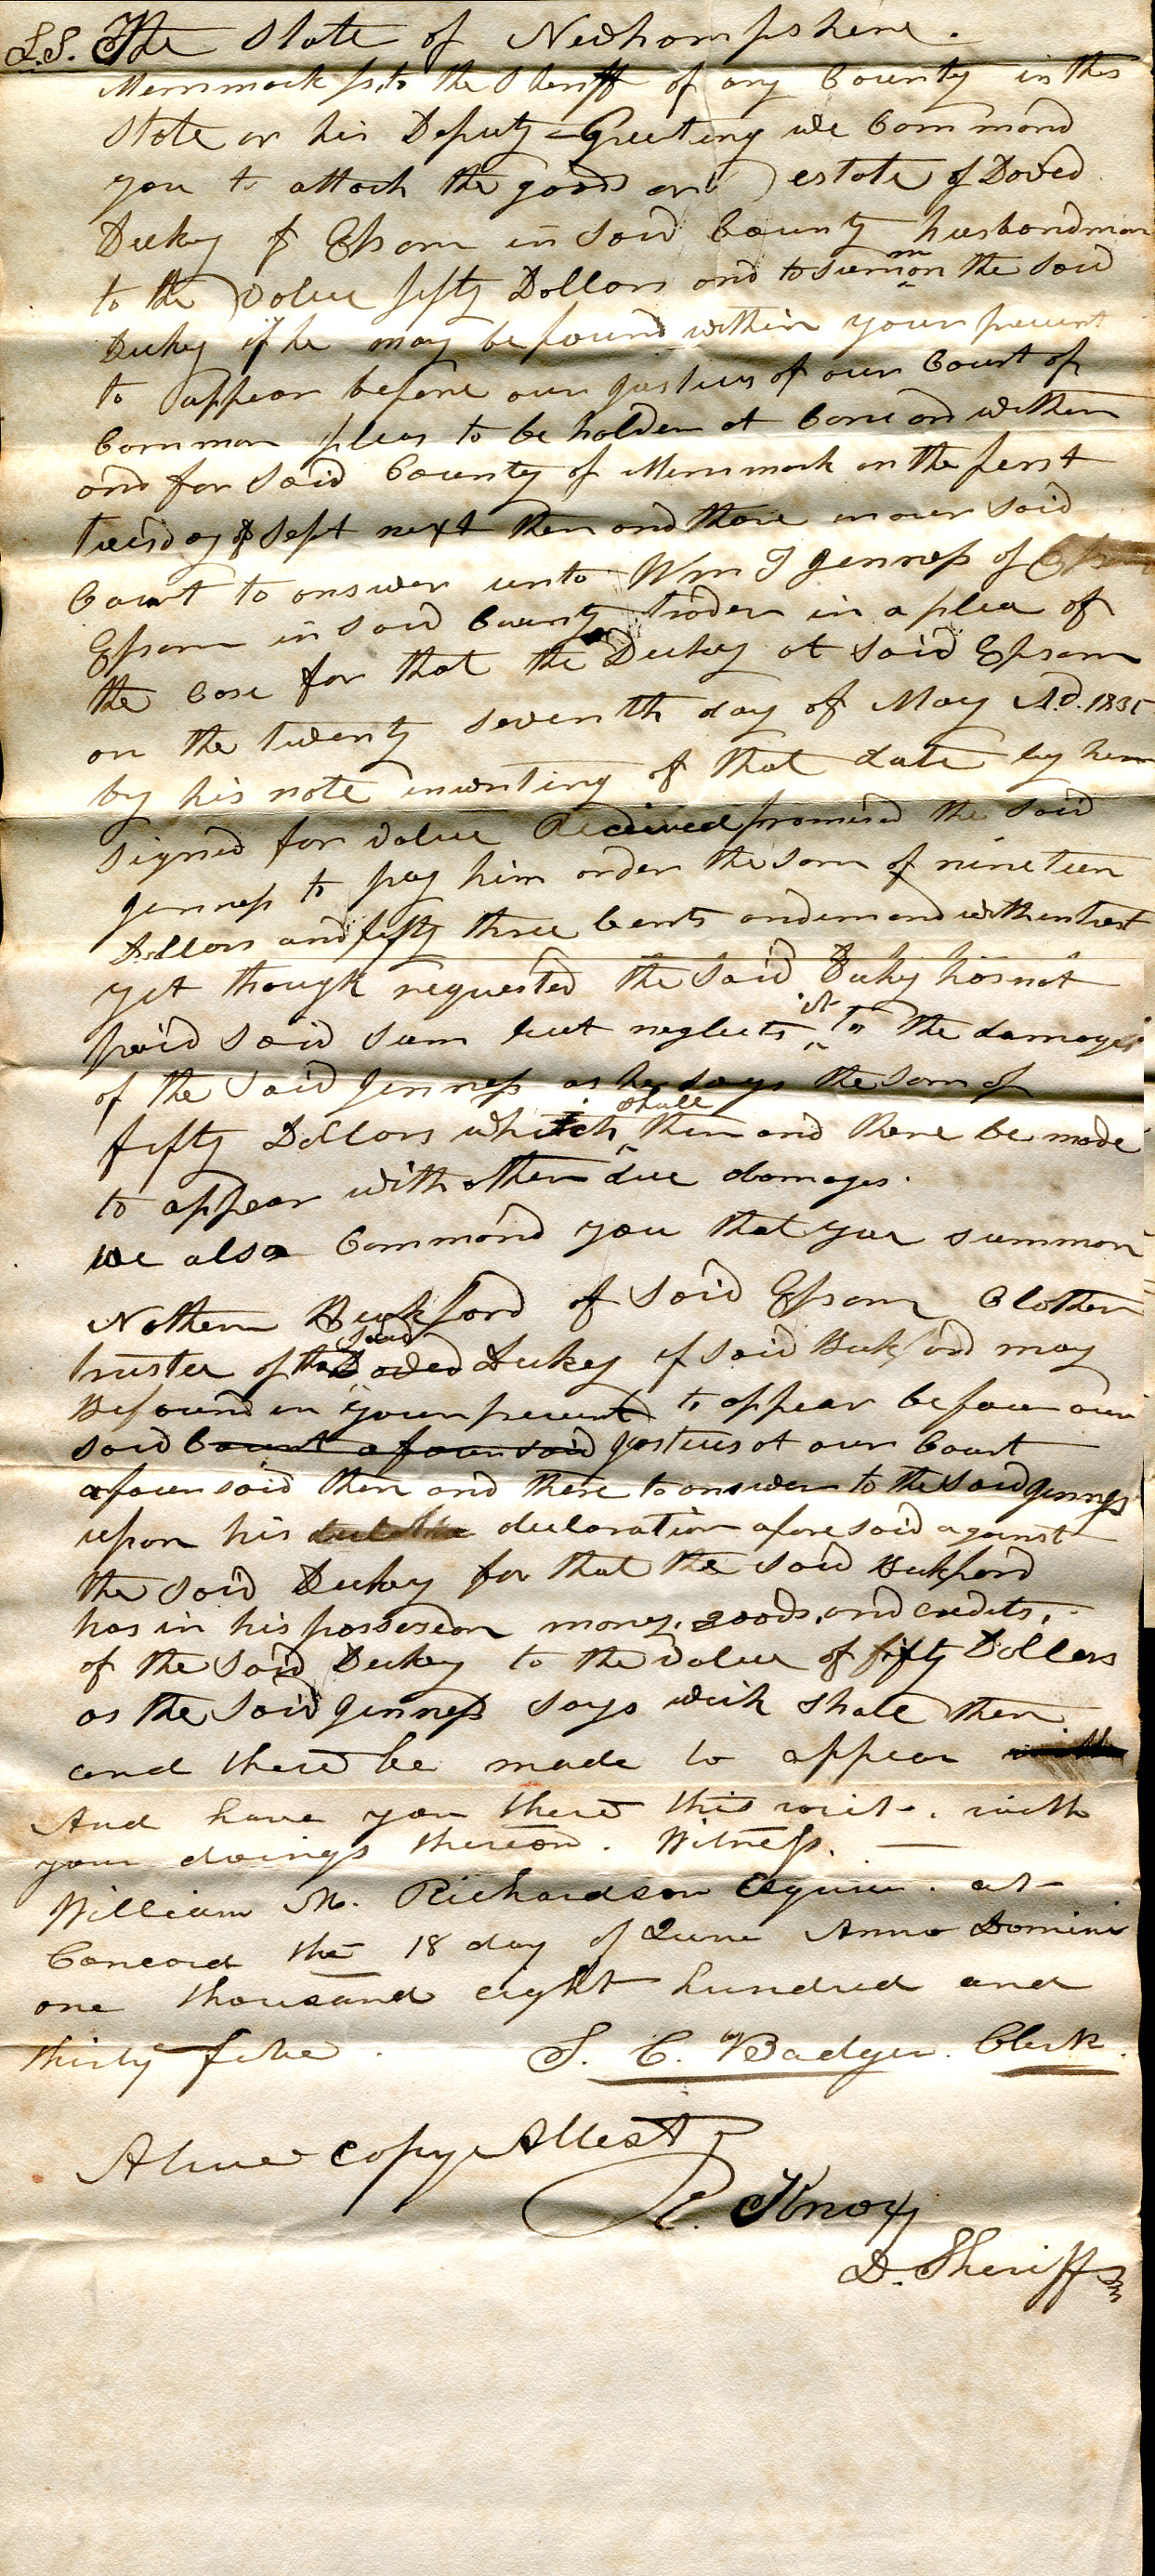 L.S. The State of Newhampshire.
Merrimack ss. to the Sheriff of any County in this
State or his Deputy = Greeting we Command
you to attach the goods and estate of David
Dickey of Epsom in said County husbandman
to the value fifty Dollars and to summon the said
Dickey if he may be found within your precinct
to appear before our Justices of our Court of
Common pleas to be holden at Concord within
and for said County of Merrimack on the first
tuesday of Sept next then and there in our said
Court to answer unto Wm J Jenness of
Epsom in said County trader in a plea of
the case for that the Dickey at said Epsom
on the twenty seventh day of May A.D. 1835
by his note in writing of that date by him
signed for value Received promised the said
Jenness to pay him order the sum of nineteen
Dollars and fifty three Cents on demand with intrest
yet though requested the said Dickey has not
paid said sum but neglects it to the damages
of the said Jenness as he says the sum of
fifty Dollars which shall then and there be made
to appear with other due damages.
we also Command you that you summon
Nathen Bickford of said Epsom Clothier
trustee of the said David Dickey if said Bickford may
Be found in your precinct to appear before our
said Court afoursaid Justices at our Court
afoursaid then and there to answer to the said Jenness
upon his declaration aforesaid against
the said Dickey for that the said Bickford
has in his possession money, goods, and credits,
of the said Dickey to the value of fifty Dollars
as the said Jenness says wich shall then
and there be made to appear with
And have you there this writ. with
your doings thereon. Witness.
William M. Richardson Esquire. at
Concord the 18 day of June Anno Domini
one thousand eight hundred and
thirty five. S. C. Badger. Clerk.
A true copy Attest
Knox
D. Sheriff